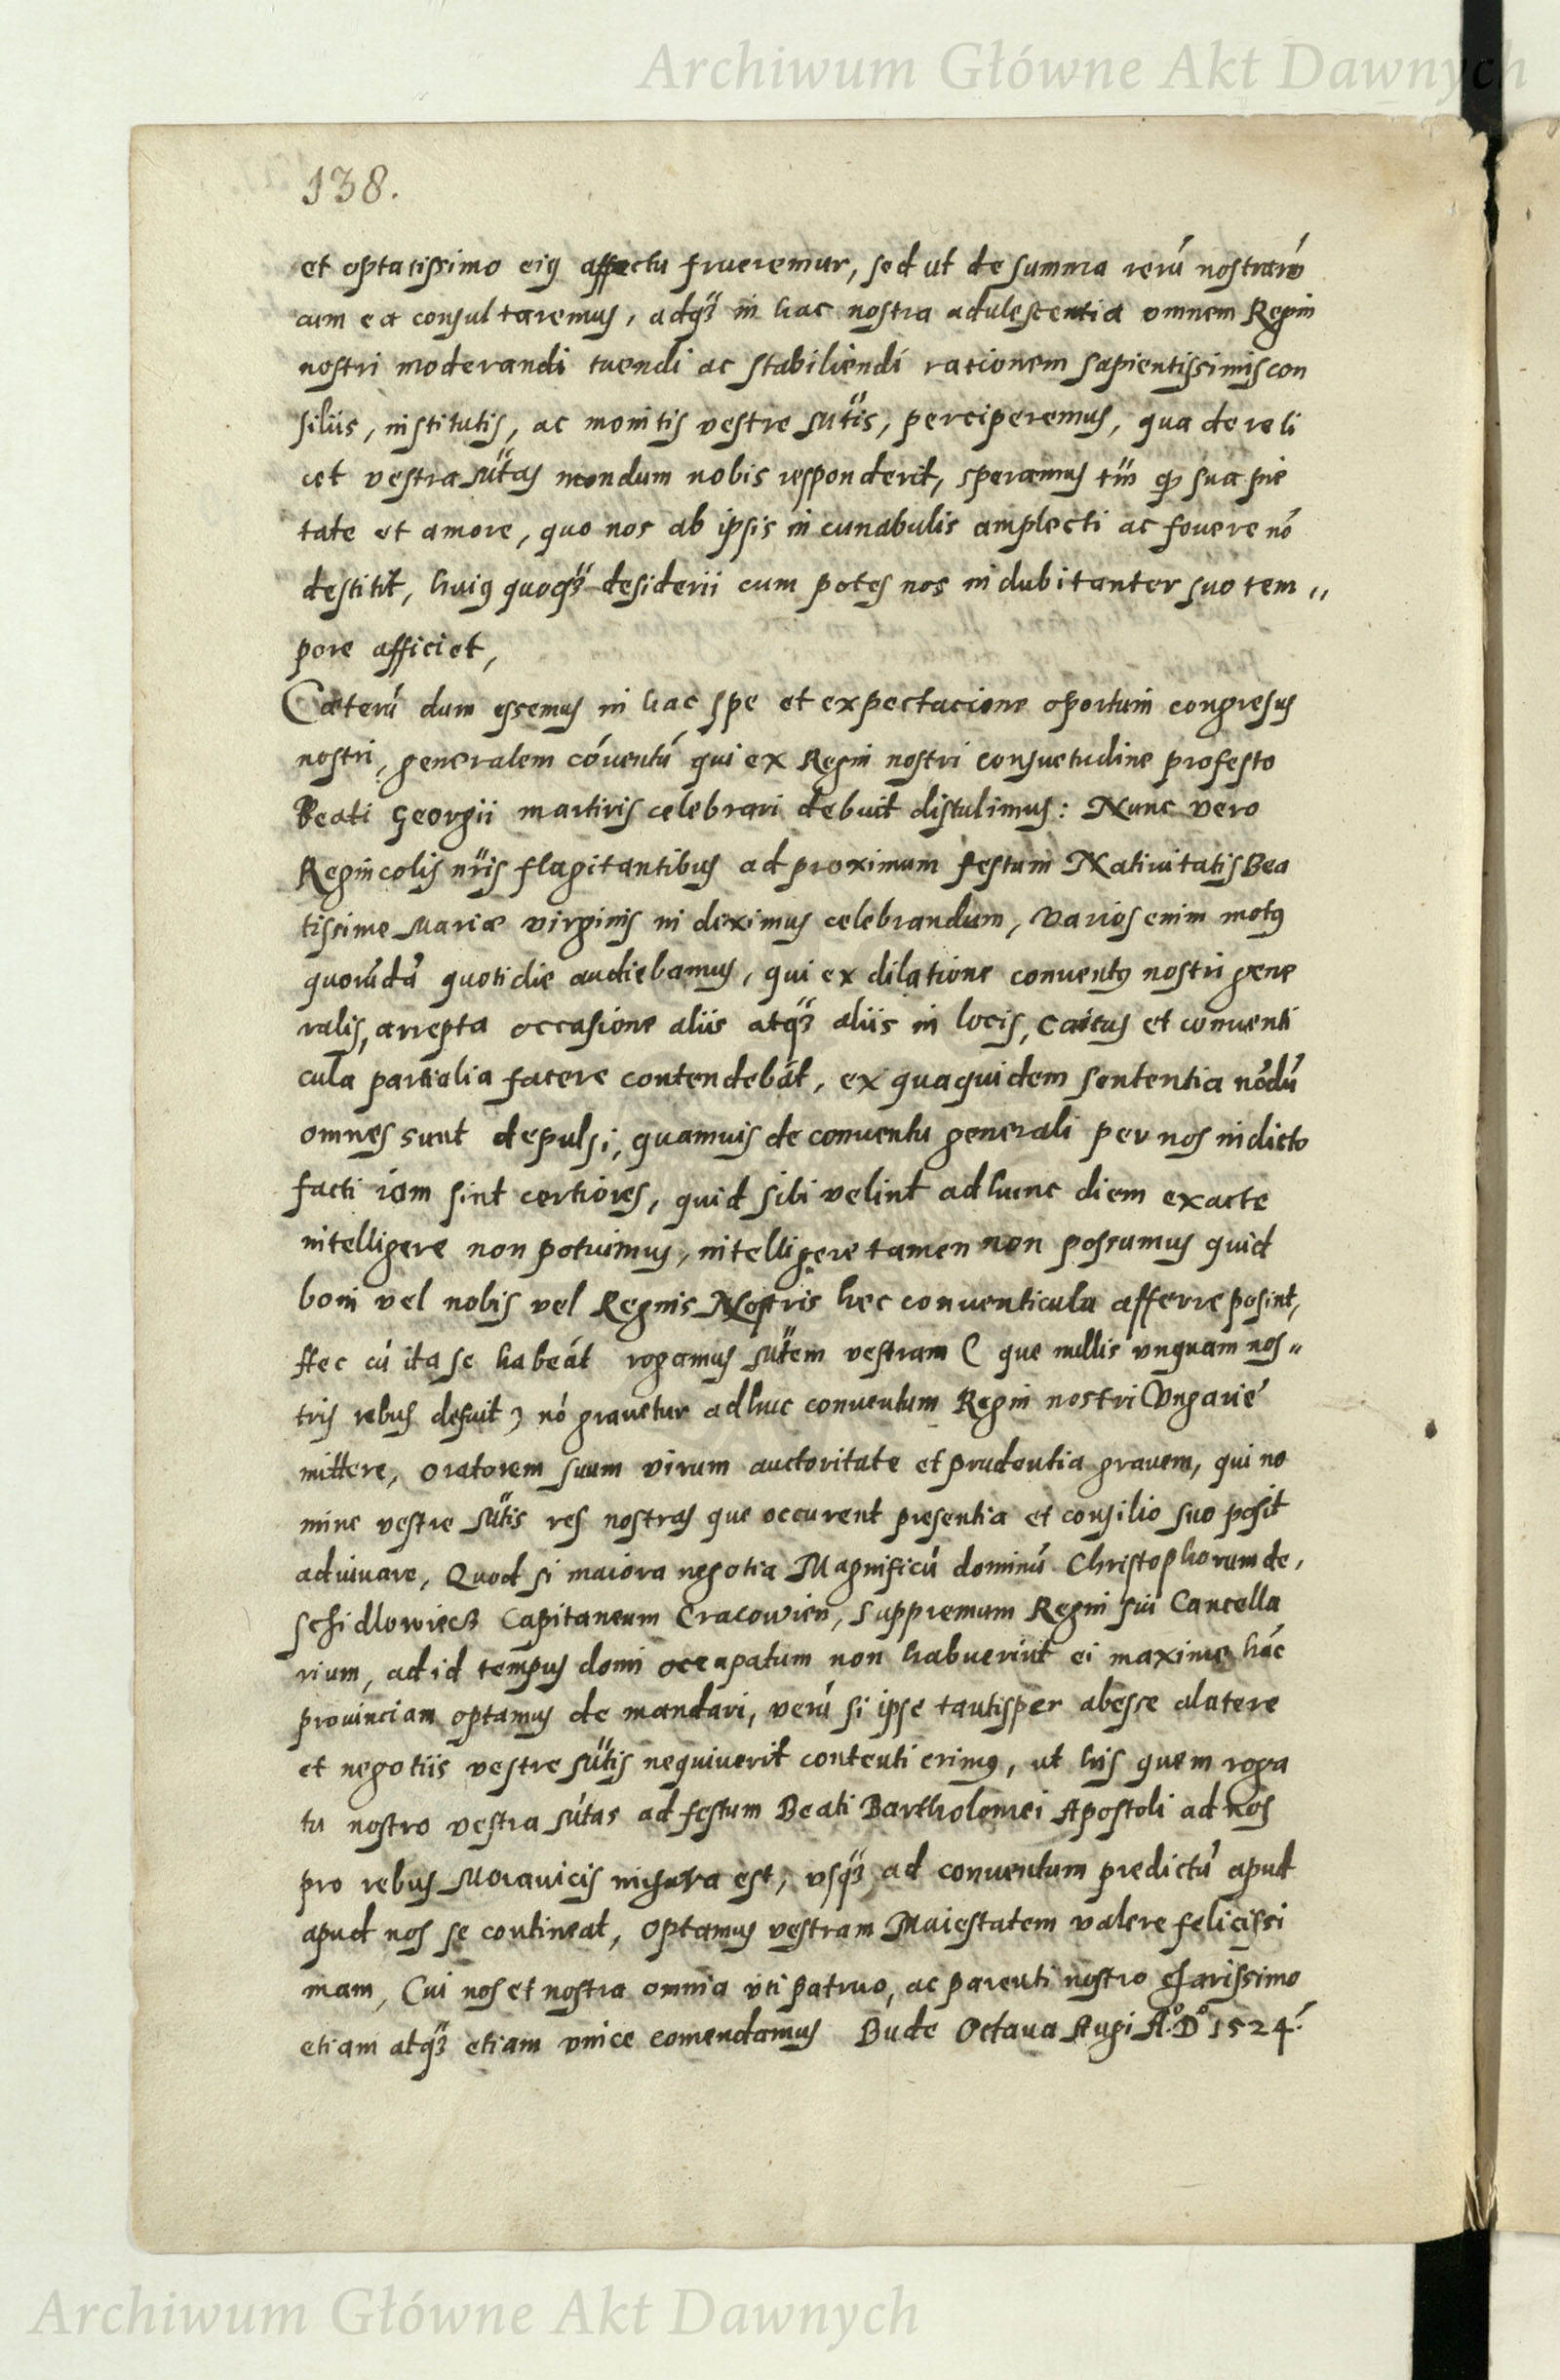 Archiwum Główne Akt Dawnych
138.
et optatissimo eiꝰ affectu frueremur, sed ut de summa rerū nostrarū
cum ea consultaremus, adqꝫ in hac nostra adulescentia omnem Regni
nostri moderandi tuendi ac stabiliendi rationem sapientissimis con
siliis, institutis, ac monitis vestre Sūtis, perciperemus, qua de re li
cet vestra Sūtas nondum nobis responderit, speramus tn̄ qꝫ sua pie
tate et amore, quo nos ab ipsis in cunabulis amplecti ac fovere nō
destitit, huiꝰ quoqꝫ desiderii cumpotes nos indubitanter suo tem„
pore afficiet,
Cæterū dum essemus in hac spe et expectacione oportuni congresus
nostri, generalem cōventū qui ex Regni nostri consuetudine profesto
Beati Georgii martiris celebrari debuit distulimus: Nunc vero
Regnicolis nr̄is flagitantibus ad proximum festum Nativitatis Bea
tissime Mariæ virginis indeximus celebrandum, Varios enim motꝰ
quorūdā quotidie audiebamus, qui ex dilatione conventꝰ nostri gene
ralis, arrepta occasione aliis atqꝫ aliis in locis, Caitus et conventi
cula partialia facere contendebāt, ex qua quidem sententia nōdū
omnes sunt depulsi, quamuis de conventu generali per nos indicto
facti iam sint certiores, quid sibi velint ad hunc diem exacte
intelligere non potuimus, intelligere tamen non possumus quid
boni vel nobis vel Regnis Nostris hec conventicula afferre posint,
Hec cū ita se habeāt rogamus Sūtem vestram ( que nullis vnquam nos„
tris rebus defuit ) nō gravetur ad huc conventum Regni nostri Vngarie
mittere, oratorem suum virum auctoritate et prudentia gravem, qui no
mine vestre Sūtis res nostras que occurent presentia et consilio suo posit
adiuvare, Quod si maiora negotia Magnificū dominū Christophorum de,
Schidlowiecz Capitaneum Cracowien, Suppremum Regni sui Cancella
rium, ad id tempus domi occupatum non habuerint ei maxime hāc
provinciam optamus demandari, verū si ipse tantisper abesse alatere
et negotiis vestre Sūtis nequiverit contenti erimꝰ, ut his quem roga
tu nostro vestra Sūtas ad festum Beati Bartholomei Apostoli ad nos
pro rebus Moravicis misura est, vsqꝫ ad conventum predictū apud
apud nos se contineat, Optamus vestram Maiestatem valere felicissi
mam, Cui nos et nostra omnia vti patruo, ac parenti nostro charissimo
etiam atqꝫ etiam vnice comendamus Bude Octava Augi A°. D° 1524.
Archiwum Główne Akt Dawnych